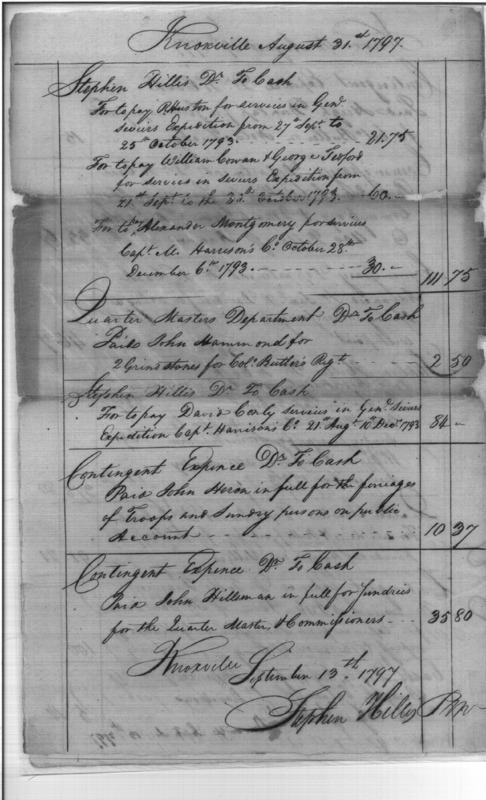 Knoxville August 31st 1797.
Stephen Hillis Dr To Cash
For to pay R. Huston for services in Genl
Seviers Expedition from 27th Sept. to
25th October 1793. 21.75
For to pay William Cowan & George Texford
for services in Seviers Expedition from
21st Sept. to the 1793. 60.—
For to pay Alexander Montgomery for services
Capt. M. Harrison's Co. October 28th
December 6th 1793. 30.— 111 75
Quarter Masters Department Dr To Cash
Paid John Hammond for
2 Grindstones for Colo. Butler's Regt. 2 50
Stephen Hillis Dr To Cash
For to pay David Conly services in Genl. Seviers
Expedition Capt. Harrison's Co. 21st Augt. 10th Decr. 1793 84 —
Contingent Expence Dr To Cash
Paid John Heron in full for the ferriages
of Troops and Sundry persons on public
Account 10 37
Contingent Expence Dr To Cash
Paid John Hilleman in full for Sundries
for the Quarter Master & Commissioners 35 80
Knoxville September 13th 1797
Stephen Hillis